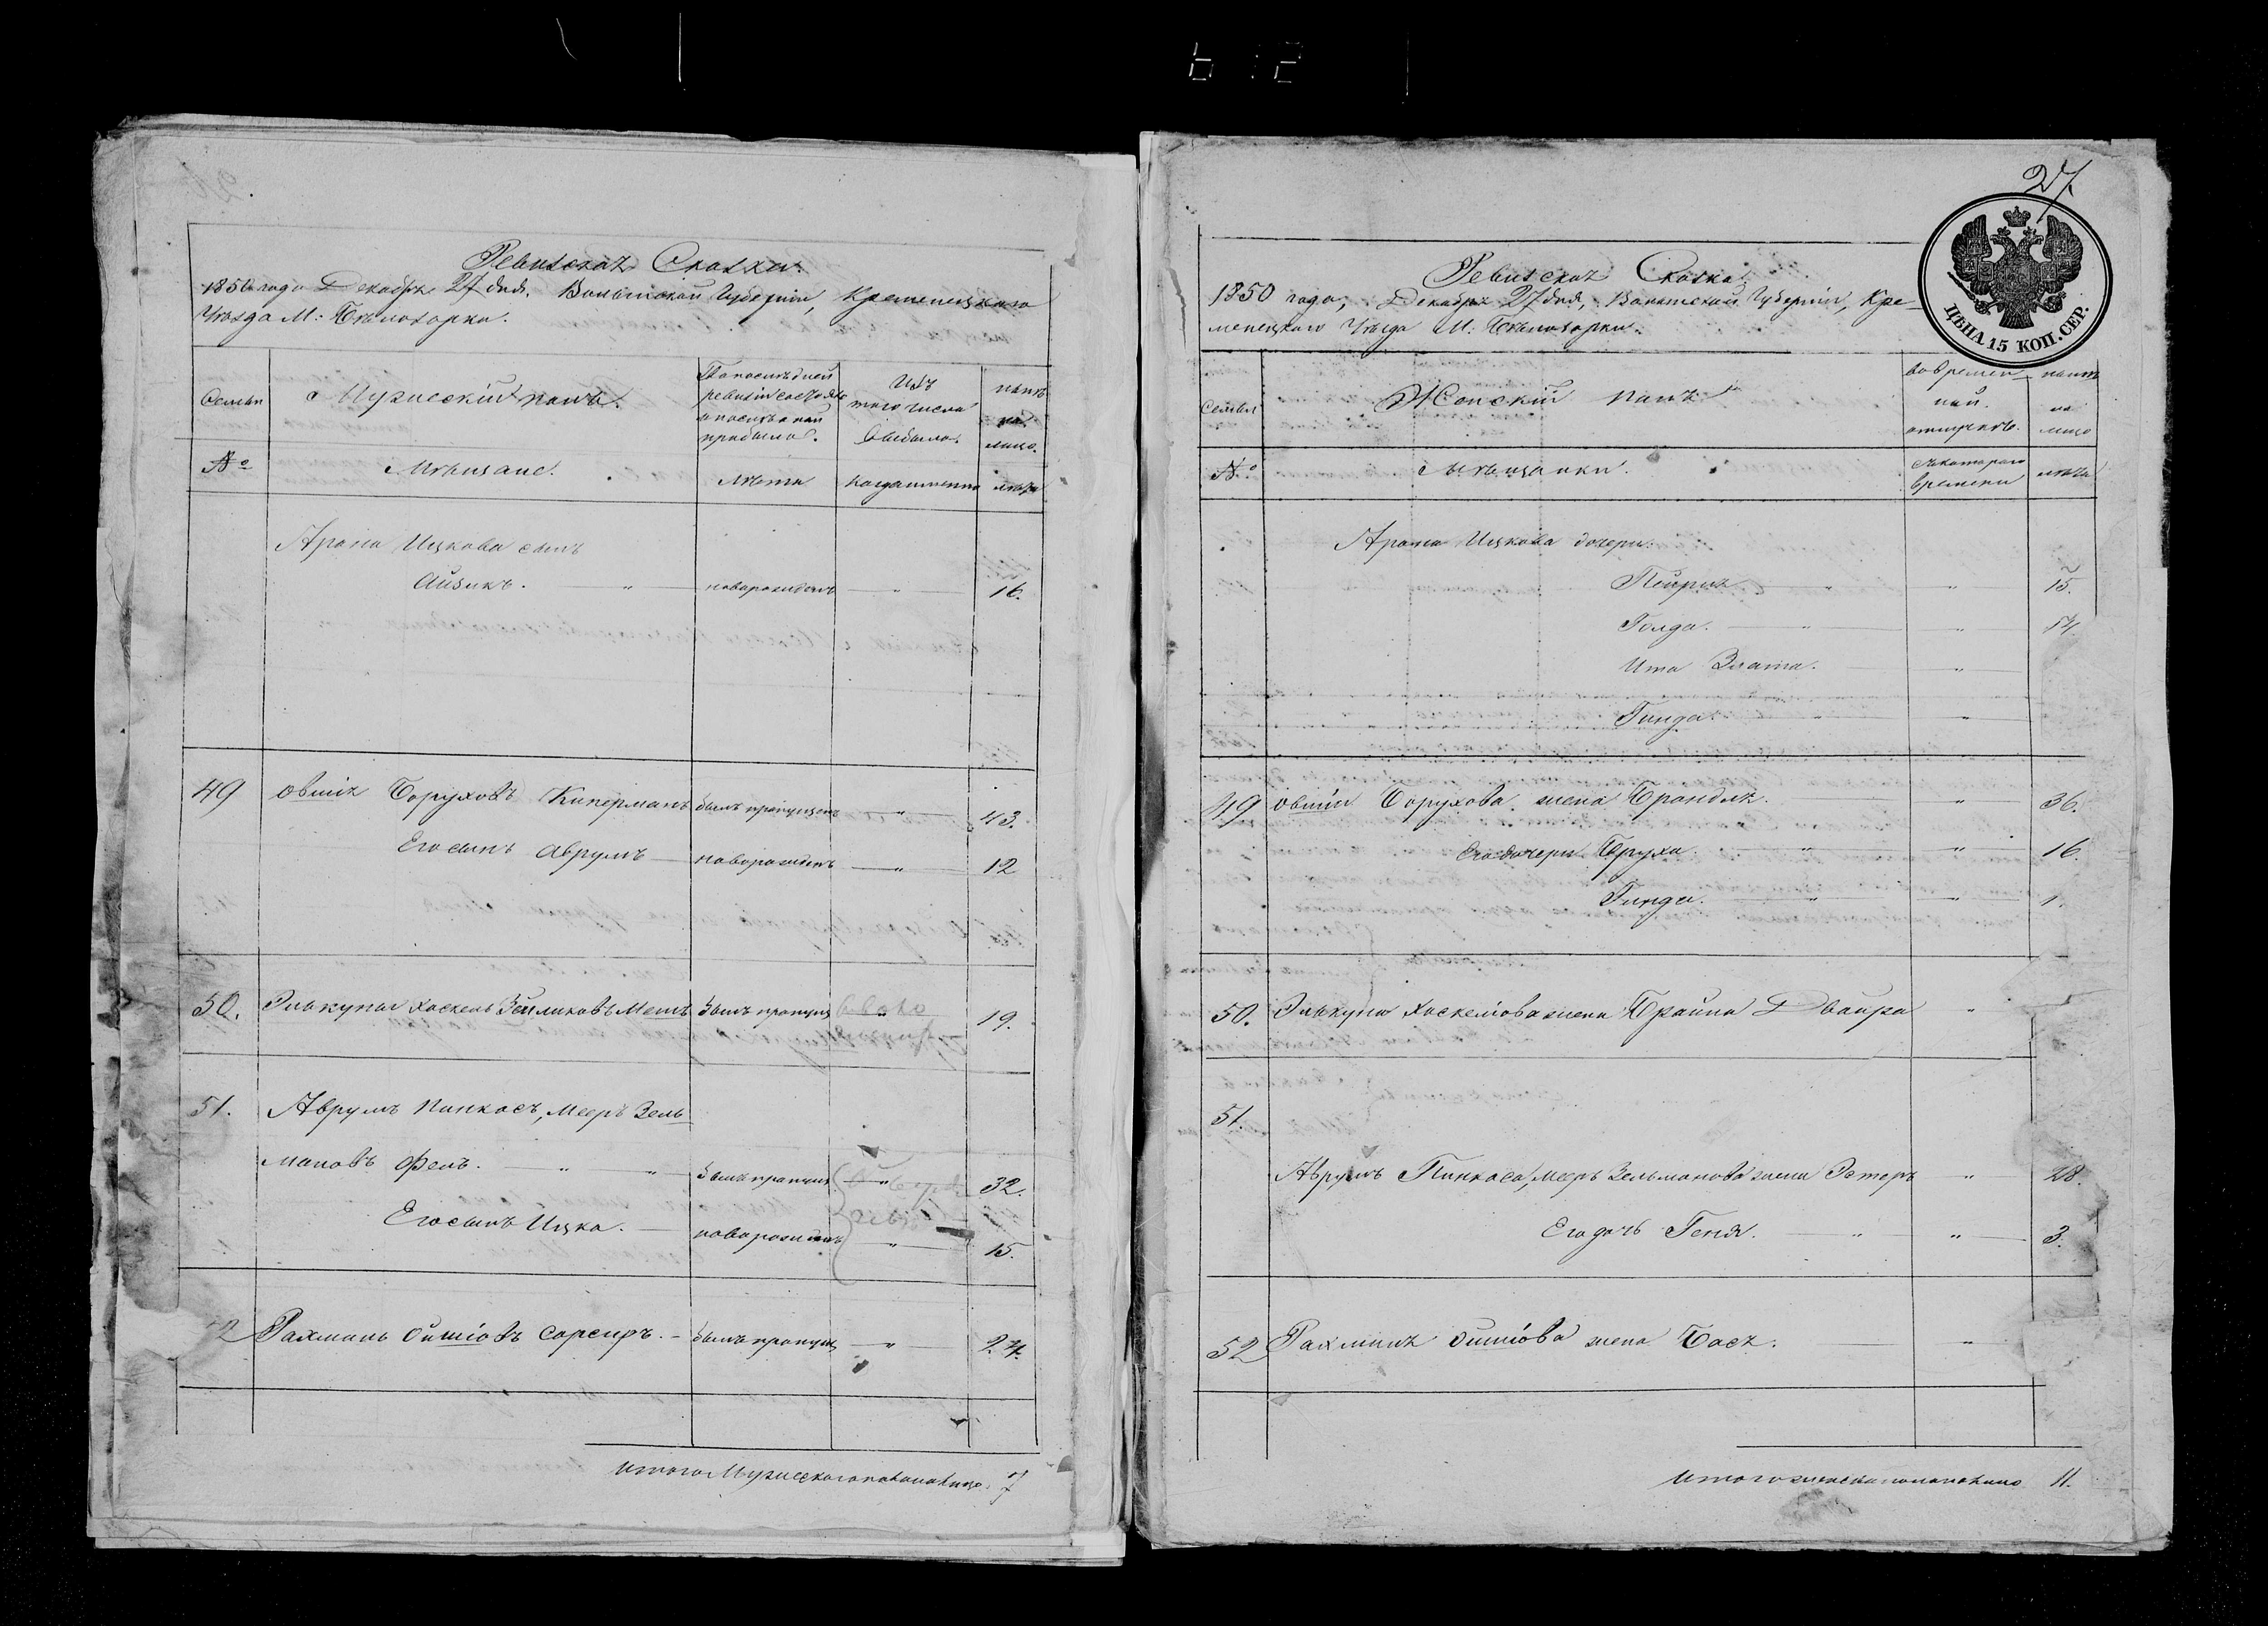 Ревизская Сказка.
1850 года Декабря 27 дня. Волынской Губерніи, Кременецкаго
Уѣзда М: Бѣлозорки.
Семьи
Мужескій полъ.
По послѣдней
ревизіи состояло
и послѣ оной
прибыло.
Изъ
того числа
выбыло.
нынѣ
на
лицо.
№
Мѣщане.
Лѣта
когда именно
лѣта
Арона Ицкова сынъ
Айзикъ. " новорожденъ " 16.
49 Овшія Боруховъ Киперманъ былъ пропущенъ " 43.
Его сынъ Аврумъ новорожденъ " 12
50. Элькуна Хаскель Зейликовъ былъ пропущ 19.
51. Аврумъ Пинкасъ, Мееръ Зель
мановъ Фелъ. " " былъ пропущ " 32.
Его сынъ Ицко. новорожденъ " 15.
52 Рахмиль Ойшіовъ был пропущ " 24.
Итого Мужескаго пола на лицо. 7
27
ЦѢНА 15 КОП. СЕР.
Ревизская Сказка
1850 года, Декабря 27 дня, Волынской Губерніи, Кре-
менецкаго Уѣзда М: Бѣлозорки.
Семьи
Женскій полъ
во времен-
ной
отлучкѣ.
нынѣ
на
лицо
№
Мѣщанки.
съ котораго
времени
лѣта
Арона Ицкова дочери:
Пейрля " " 15.
Голда. " " 14.
Ита Злата. "
Гинда. " "
49 Овшіи Борухова жена Брандля. " 36.
Его дочери Бруха. " " 16.
Гинда. " " 1.
50. Элькуна Хаскеліова жена Брайна Двойра "
51.
Аврумъ Пинкаса, Мееръ Зельманова жена Эстеръ " 28.
Его дочь Геня. " " 3.
52 Рахмиля Ойшіова жена Бася. "
Итого женскаго пола на лицо 11.